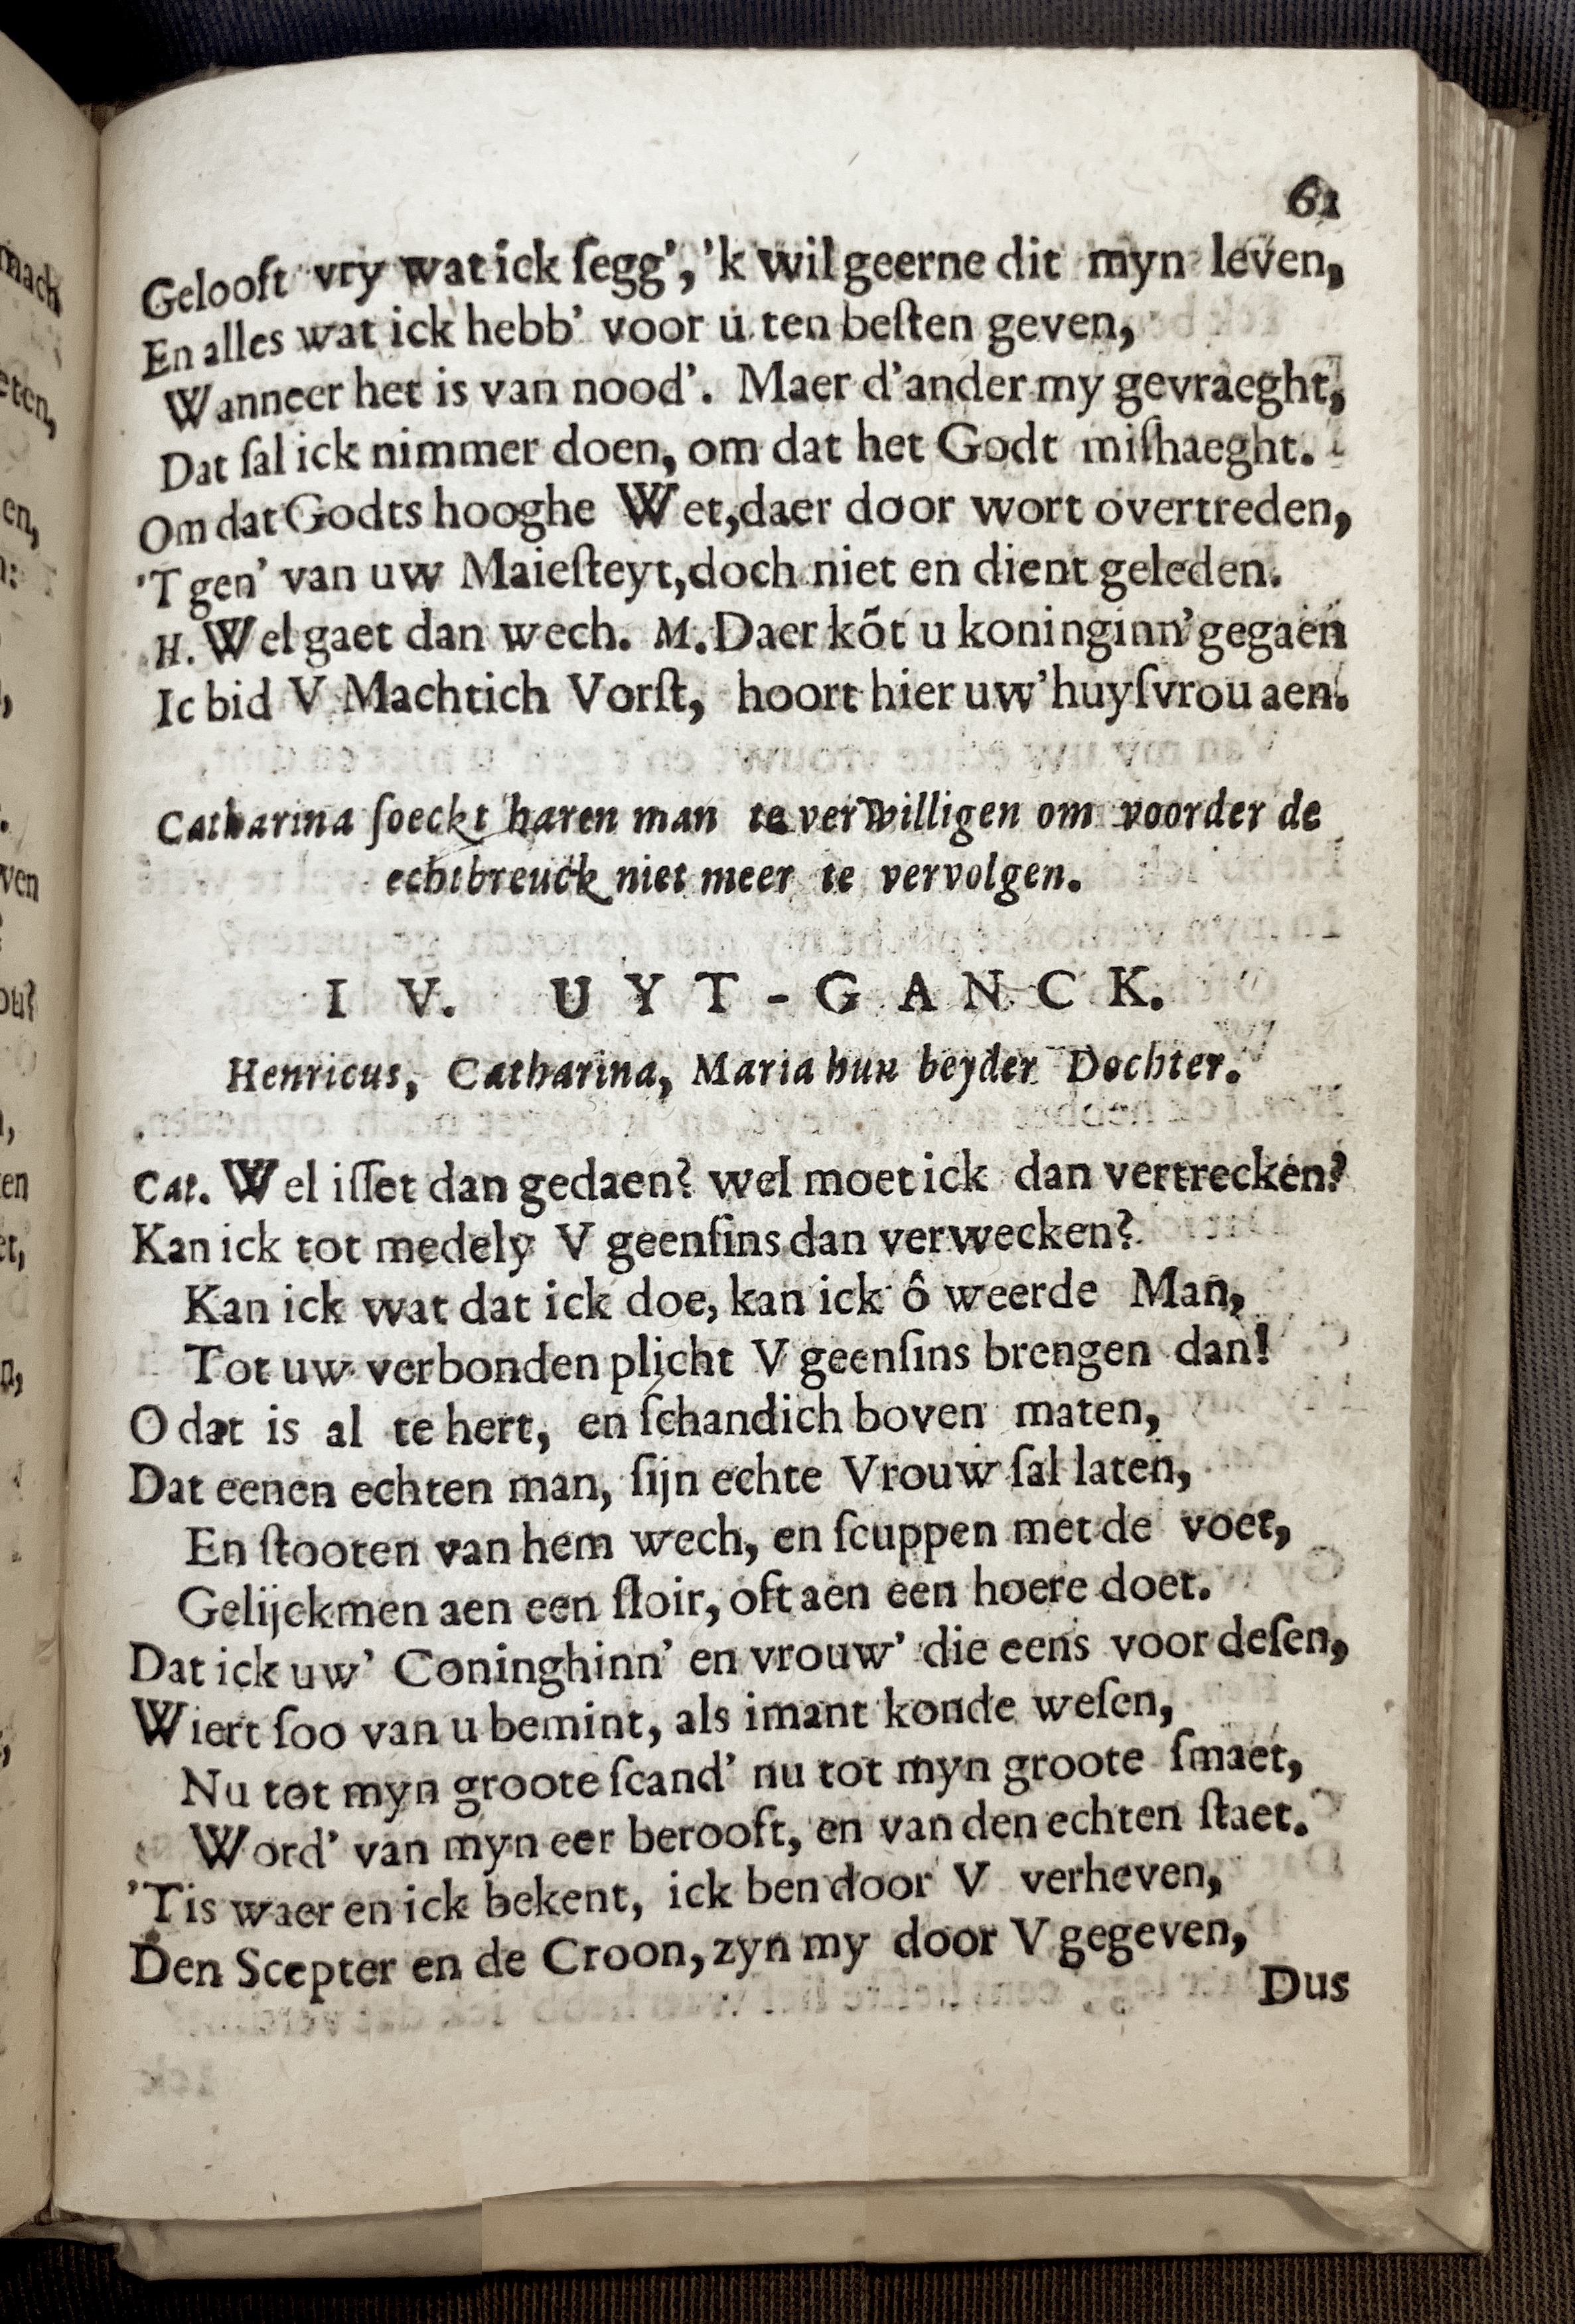 61
Gelooft vry wat ick ſegg', 'k wil geerne dit myn leven,
En alles wat ick hebb' voor u ten beſten geven,
Wanneer het is van nood'. Maer d'ander my gevraeght,
Dat ſal ick nimmer doen, om dat het Godt miſhaeght.
Om dat Godts hooghe Wet, daer door wort overtreden,
'T gen' van uw Maieſteyt, doch niet en dient geleden.
H. Wel gaet dan wech. M. Daer kõt u koninginn' gegaen
Ic bid V Machtich Vorſt, hoort hier uw' huyſvrou aen.
Catharina ſoeckt haren man te verwilligen om voorder de
echtbreuck niet meer te vervolgen.
IV. UYT-GANCK.
Henricus, Catharina, Maria hun beyder Dochter.
Cat. Wel iſſet dan gedaen? wel moet ick dan vertrecken?
Kan ick tot medely V geenſins dan verwecken?
Kan ick wat dat ick doe, kan ick ô weerde Man,
Tot uw verbonden plicht V geenſins brengen dan!
O dat is al te hert, en ſchandich boven maten,
Dat eenen echten man, ſijn echte Vrouw ſal laten,
En ſtooten van hem wech, en ſcuppen met de voet,
Gelijckmen aen een ſloir, oft aen een hoere doet.
Dat ick uw' Coninghinn' en vrouw' die eens voor deſen,
Wiert ſoo van u bemint, als imant konde weſen,
Nu tot myn groote ſcand' nu tot myn groote ſmaet,
Word' van myn eer berooft, en van den echten ſtaet.
'Tis waer en ick bekent, ick ben door V verheven,
Den Scepter en de Croon, zyn my door V gegeven,
Dus